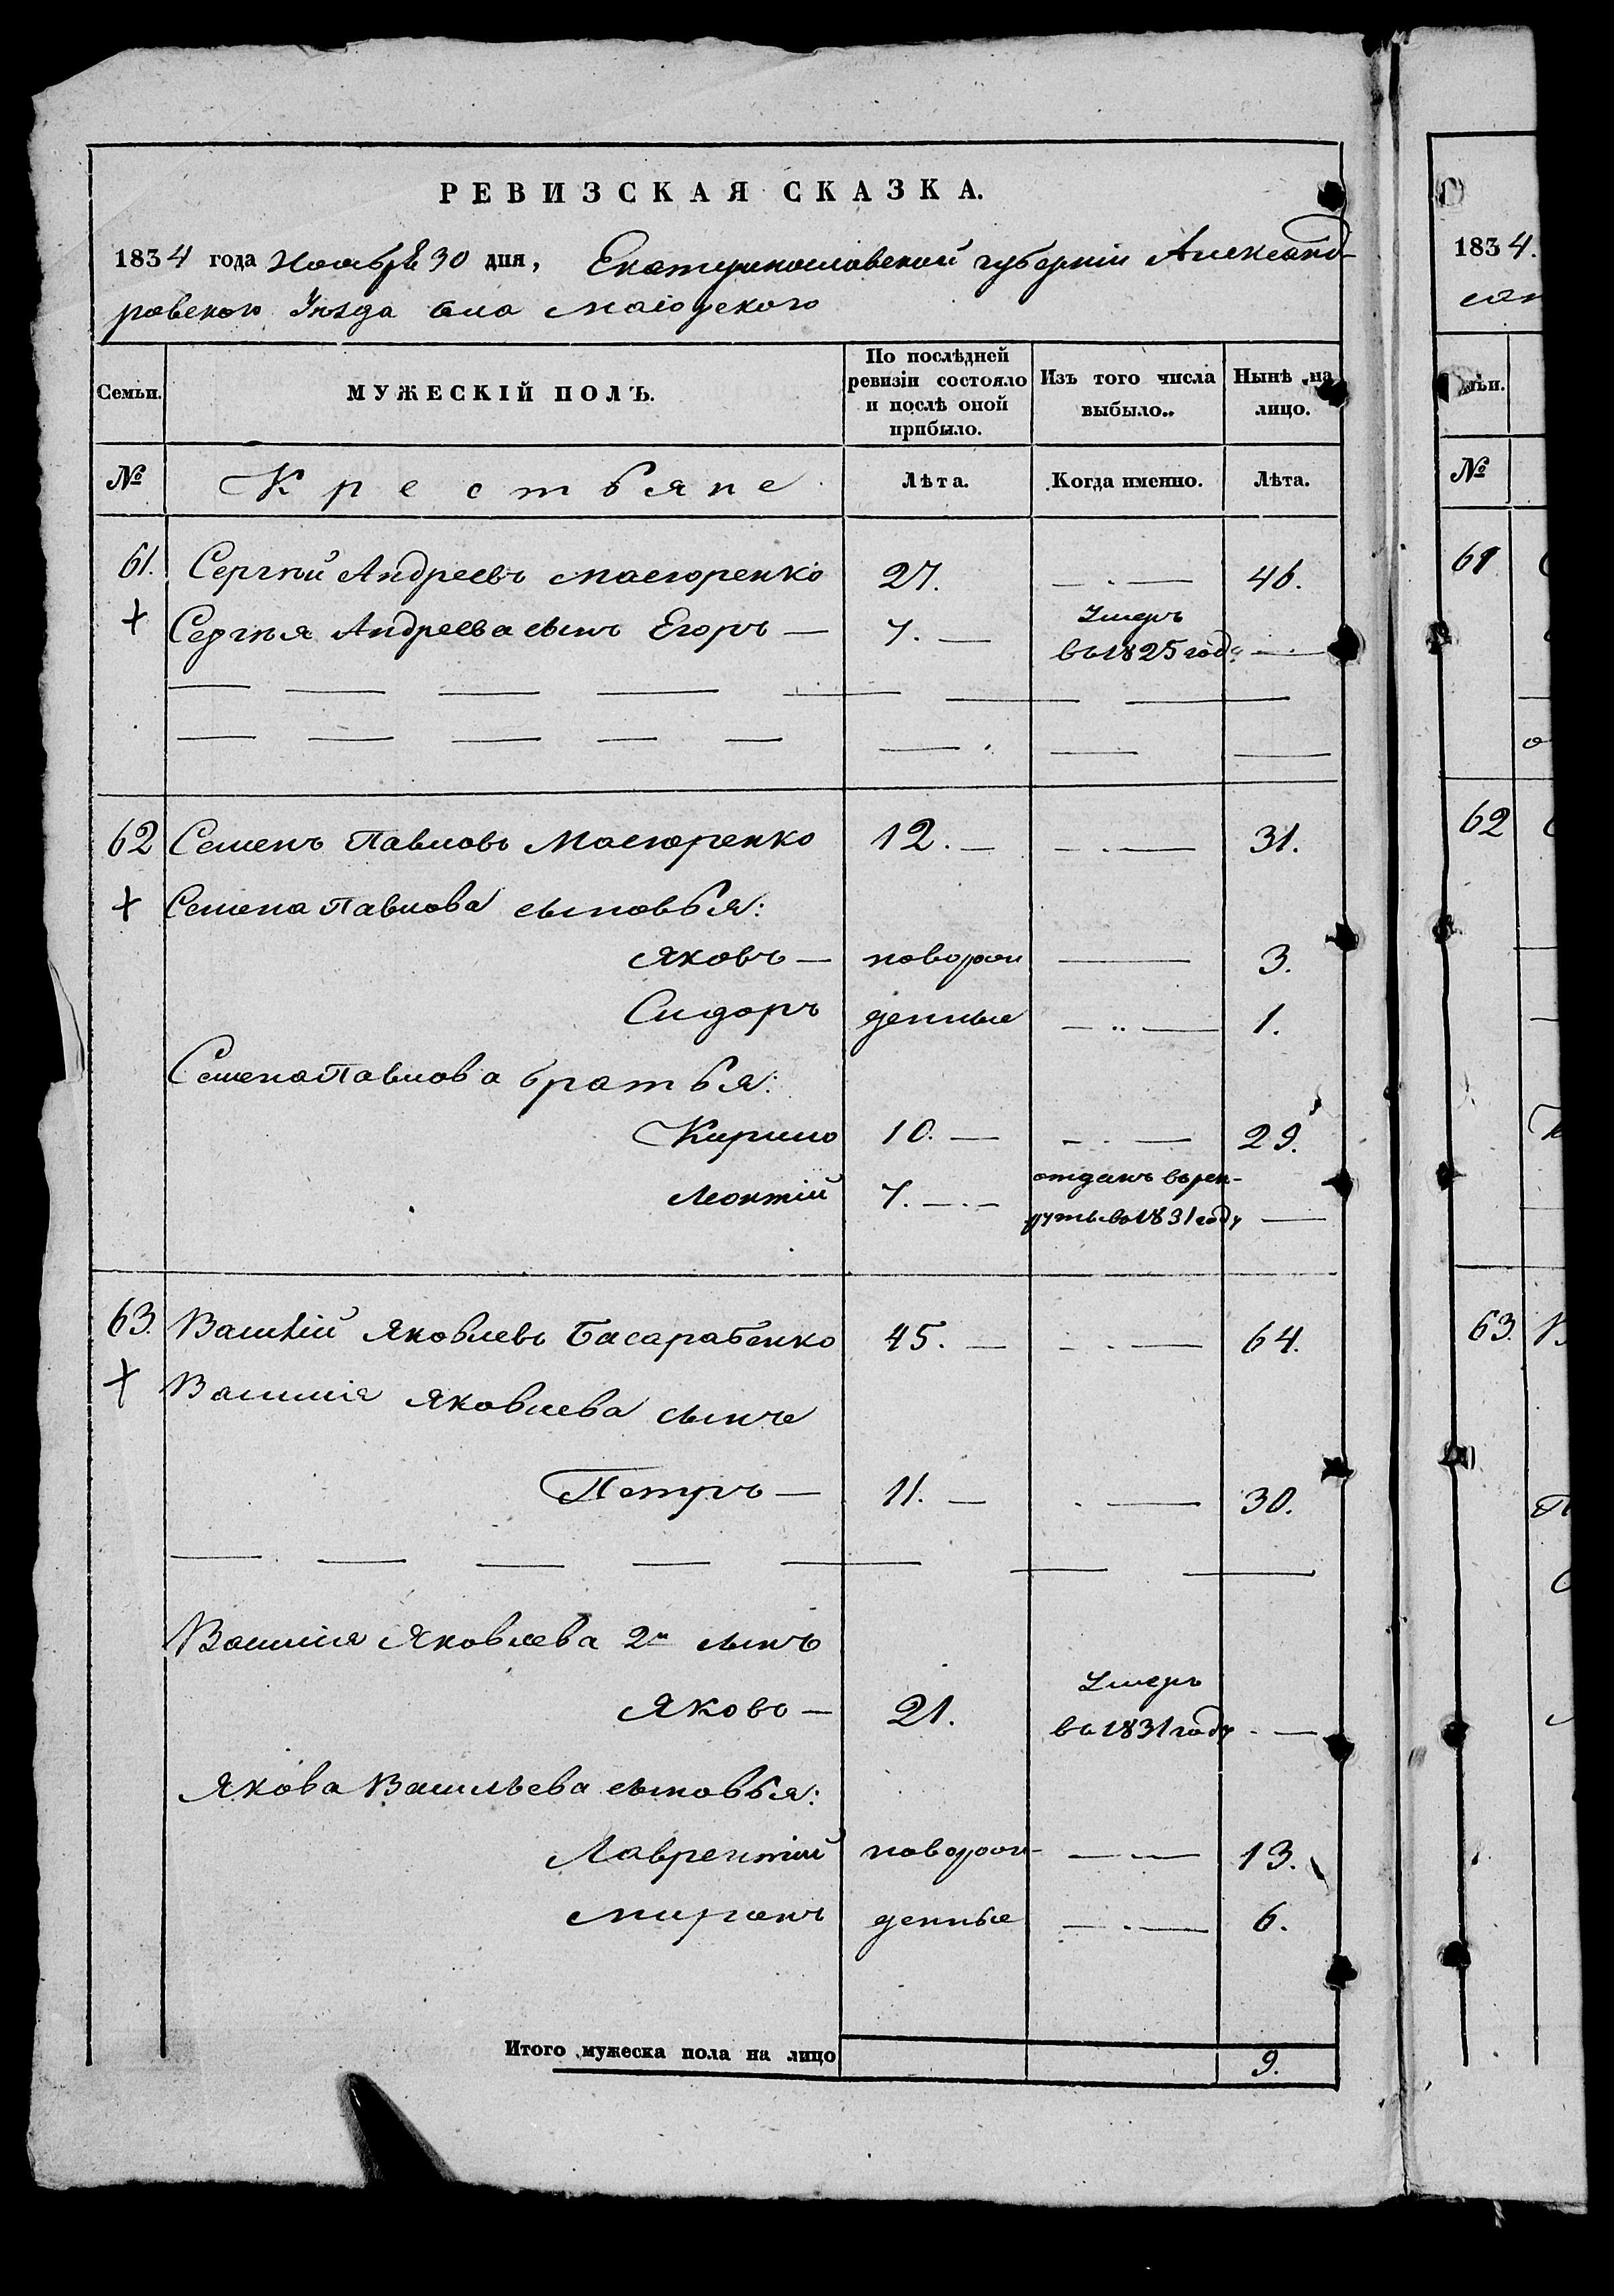 РЕВИЗСКАЯ СКАЗКА.
1834 года Ноября 30 дня, Екатеринославской губерніи Александ-
ровского Уѣзда села Маіорского
Семьи.
МУЖЕСКІЙ ПОЛЪ.
По послѣдней ревизіи состояло и послѣ оной прибыло.
Изъ того числа выбыло..
Нынѣ на лицо.
№ Крестьяне Лѣта. Когда именно. Лѣта.
61. Сергѣй Андреевъ Масюренко 27. 46.
+ Сергѣя Андреева сынъ Егоръ — 7. — Умеръ
въ 1825 году —
62 Семенъ Павловъ Масюренко 12. — 31.
+ Семена Павлова сыновья:
Яковъ — новорож 3.
Сидоръ денные 1.
Семена Павлова братья:
Кирило 10. — 29.
Леонтій 7. — отданъ въ рек-
руты въ 1831 году —
63. Василій Яковлевъ Басарабенко 45. — 64.
+ Василія Яковлева сынъ
Петръ — 11. — 30.
Василія Яковлева 2й сынъ
Яковъ — 21. Умеръ
въ 1831 году —
Якова Васильева сыновья:
Лаврентій новорож- 13.
Миронъ денные 6.
Итого мужеска пола на лицо 9.
1834.
№
61
62
63.